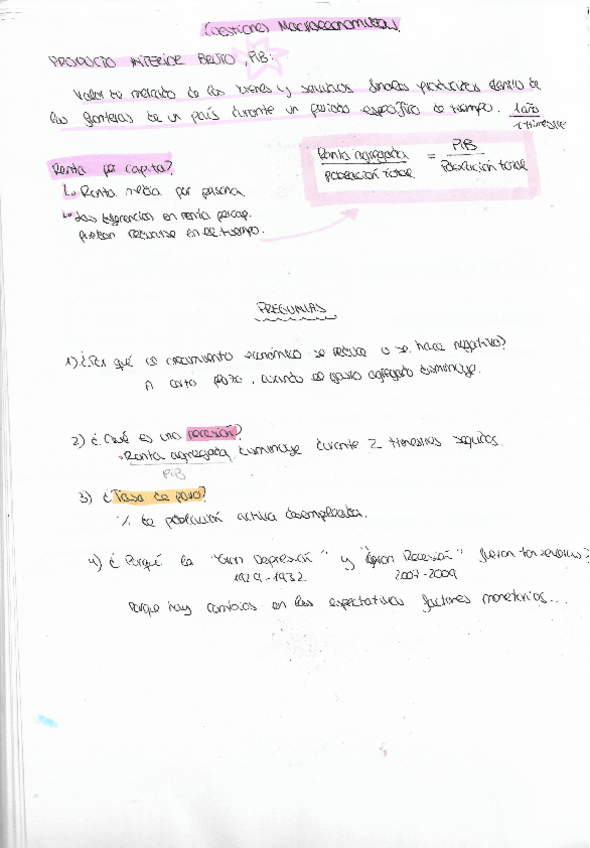 Cuestiones Macroeconómicas.
PRODUCTO INTERIOR BRUTO, PIB:
Valor de mercado de los bienes y servicios finales producidos dentro de
las fronteras de un país durante un periodo específico de tiempo. 1 año
1 trimestre
Renta per capita?
Renta agregada / población total = PIB / Población total
↳ Renta media por persona
↳ Las diferencias en renta percap.
pueden reducirse en el tiempo.
PREGUNTAS
1) ¿Por qué el crecimiento económico se reduce o se hace negativo?
A corto plazo, cuando el gasto agregado disminuye.
2) ¿Qué es una recesión?
Renta agregada disminuye durante 2 trimestres seguidos.
PIB
3) ¿Tasa de paro?
% de población activa desempleada.
4) ¿Porqué la "Gran Depresión" y "Gran Recesión" fueron tan severas?
1929-1932 2007-2009
Porque hay cambios en las expectativas factores monetarios...